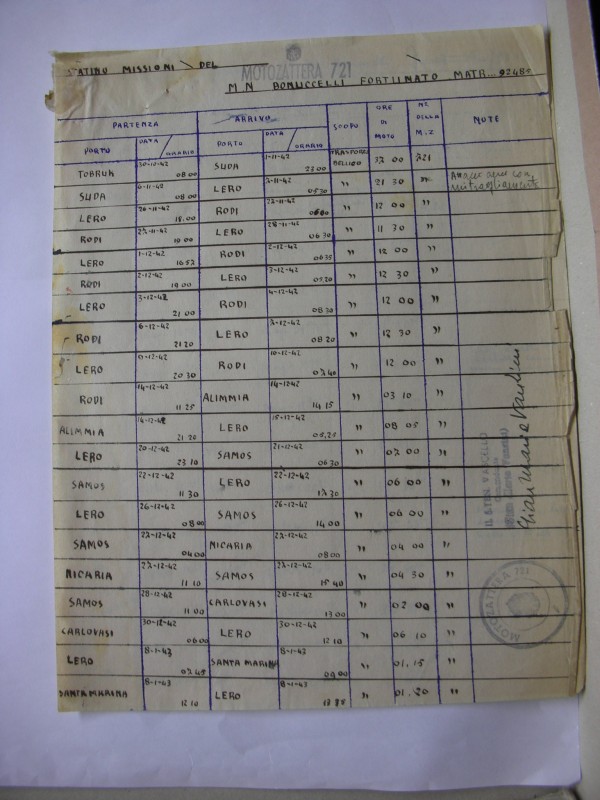 STATINO MISSIONI DEL MOTOZATTERA 721
MN BONUCCELLI FORTUNATO MATR... 92485
PARTENZA ARRIVO SCOPO ORE DI MOTO NZ DELLA M.Z NOTE
PORTO DATA/ORARIO PORTO DATA/ORARIO
TOBRUK 30-10-42 08 00 SUDA 1-11-42 23 00 TRASPORTO BELLICO 37 00 721
SUDA 6-11-42 08 00 LERO 7-11-42 05 30 " 21 30 "
mitragliamento
LERO 26-11-42 18.00 RODI 27-11-42 0600 " 12 00 "
RODI 27-11-42 19 00 LERO 28-11-42 06 30 " 11 30 "
LERO 1-12-42 1657 RODI 2-12-42 0635 " 12 00 "
RODI 2-12-42 19 00 LERO 3-12-42 0720 " 12 30 "
LERO 3-12-42 21 00 RODI 4-12-42 08 30 " 12 00 "
RODI 6-12-42 21 20 LERO 7-12-42 08 20 " 12 30 "
LERO 9-12-42 20 30 RODI 10-12-42 07 40 " 12 00 "
RODI 14-12-42 11 25 ALIMMIA 14-12-42 14 15 " 03 10 "
ALIMMIA 14-12-42 21 20 LERO 15-12-42 05,25 " 08 05 "
LERO 20-12-42 23 10 SAMOS 21-12-42 06 30 " 07 00 "
SAMOS 22-12-42 11 30 LERO 22-12-42 17 30 " 06 00 "
LERO 26-12-42 08 00 SAMOS 26-12-42 14 00 " 06 00 "
SAMOS 27-12-42 04 00 NICARIA 27-12-42 08 00 " 04 00 "
NICARIA 27-12-42 11 10 SAMOS 27-12-42 15 40 " 04 30 "
SAMOS 28-12-42 11 00 CARLOVASI 28-12-42 13 00 " 02 00 "
CARLOVASI 30-12-42 06 00 LERO 30-12-42 12 10 " 06 10 "
LERO 8-1-43 07 45 SANTA MARINA 8-1-43 09 00 " 01,15 "
SANTA MARINA 8-1-43 12 10 LERO 8-1-43 " 01.20 "
IL S.TEN. VASCELLO
MOTOZATTERA 721